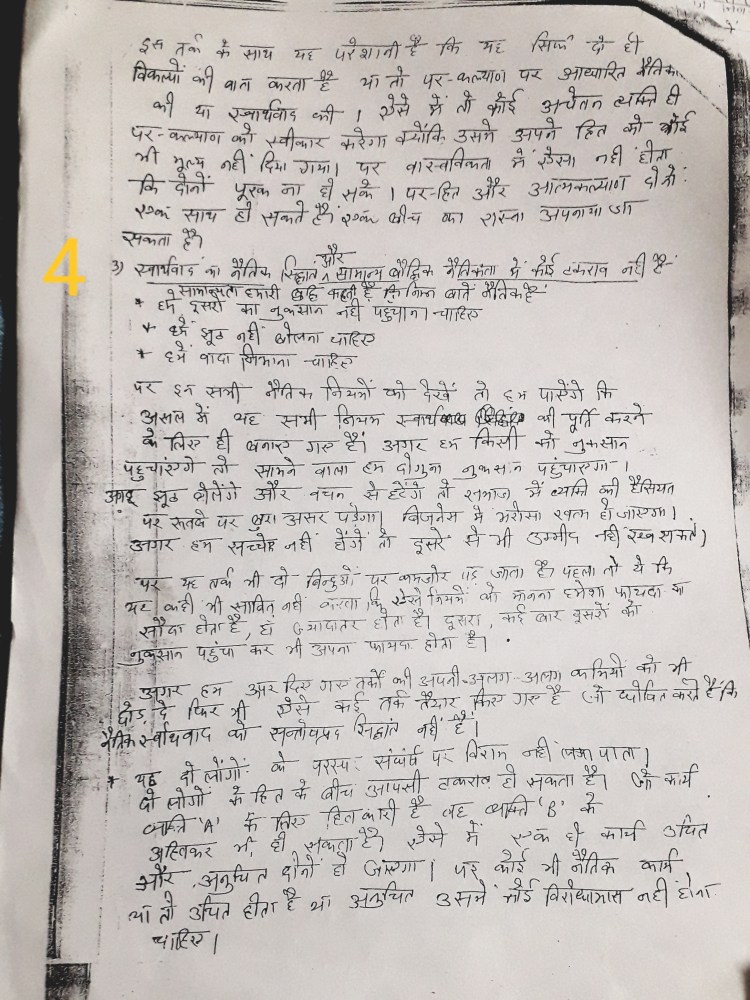 इस तर्क के साथ यह परेशानी है कि यह सिर्फ दो ही
विकल्पों की बात करता है या तो पर-कल्याण पर आधारित नैतिक
की या स्वार्थवाद की । ऐसे में तो कोई अचेतन व्यक्ति ही
पर-कल्याण को स्वीकार करेगा क्योंकि उसमें अपने हित को कोई
भी मूल्य नहीं दिया गया। पर वास्तविकता में ऐसा नहीं होता
कि दोनों पूरक ना हो सके । पर-हित और आत्मकल्याण दोनों
एक साथ हो सकते हैं। एक बीच का रास्ता अपनाया जा
सकता है।
4
3) स्वार्थवाद का नैतिक सिद्धांत और सामान्य बौद्धिक नैतिकता में कोई टकराव नहीं है-
सामान्यतः हमारी बुद्धि कहती है कि निम्न बातें नैतिक हैं
* हमें दूसरों का नुकसान नहीं पहुंचाना चाहिए
* हमें झूठ नहीं बोलना चाहिए
* हमें वादा निभाना चाहिए
पर इन सभी नैतिक नियमों को देखें तो हम पायेंगे कि
असल में यह सभी नियम स्वार्थ की पूर्ति करने
के लिए ही बनाए गए हैं। अगर हम किसी को नुकसान
पहुंचाएंगे तो सामने वाला हमें दोगुना नुकसान पहुंचाएगा ।
अगर झूठ बोलेंगे और वचन से हटेंगे तो समाज में व्यक्ति की हैसियत
पर रूतवे पर बुरा असर पड़ेगा। बिजनेस में भरोसा खत्म हो जाएगा।
अगर हम सच्चे नहीं होंगे तो दूसरे से भी उम्मीद नहीं रख सकते)
पर यह तर्क भी दो बिन्दुओं पर कमजोर पड़ जाता है। पहला तो ये कि
यह कहीं भी साबित नहीं करता कि ऐसे नियमों को मानना हमेशा फायदा का
सौदा होता है, हां ज्यादातर होता है। दूसरा, कई बार दूसरों को
नुकसान पहुंचा कर भी अपना फायदा होता है।
अगर हम दिए गए तर्कों की अपनी-अलग-अलग कमियों को भी
छोड़ दे फिर भी ऐसे कई तर्क तैयार किए गए है जो घोषित करते हैं कि
नैतिक स्वार्थवाद को सन्तोषप्रद सिद्धांत नहीं है।
* यह दो लोगों के परस्पर संघर्ष पर विराम नहीं लगा पाता।
दो लोगों के हित के बीच आपसी टकराव हो सकता है। जो कार्य
व्यक्ति 'A' के लिए हितकारी है वह व्यक्ति 'B' के
अहितकर भी हो सकता है। ऐसे में एक ही कार्य उचित
और अनुचित दोनों हो जाएगा। पर कोई भी नैतिक कार्य
या तो उचित होता है या अनुचित उसमें कोई विरोधाभास नहीं होना
चाहिए।